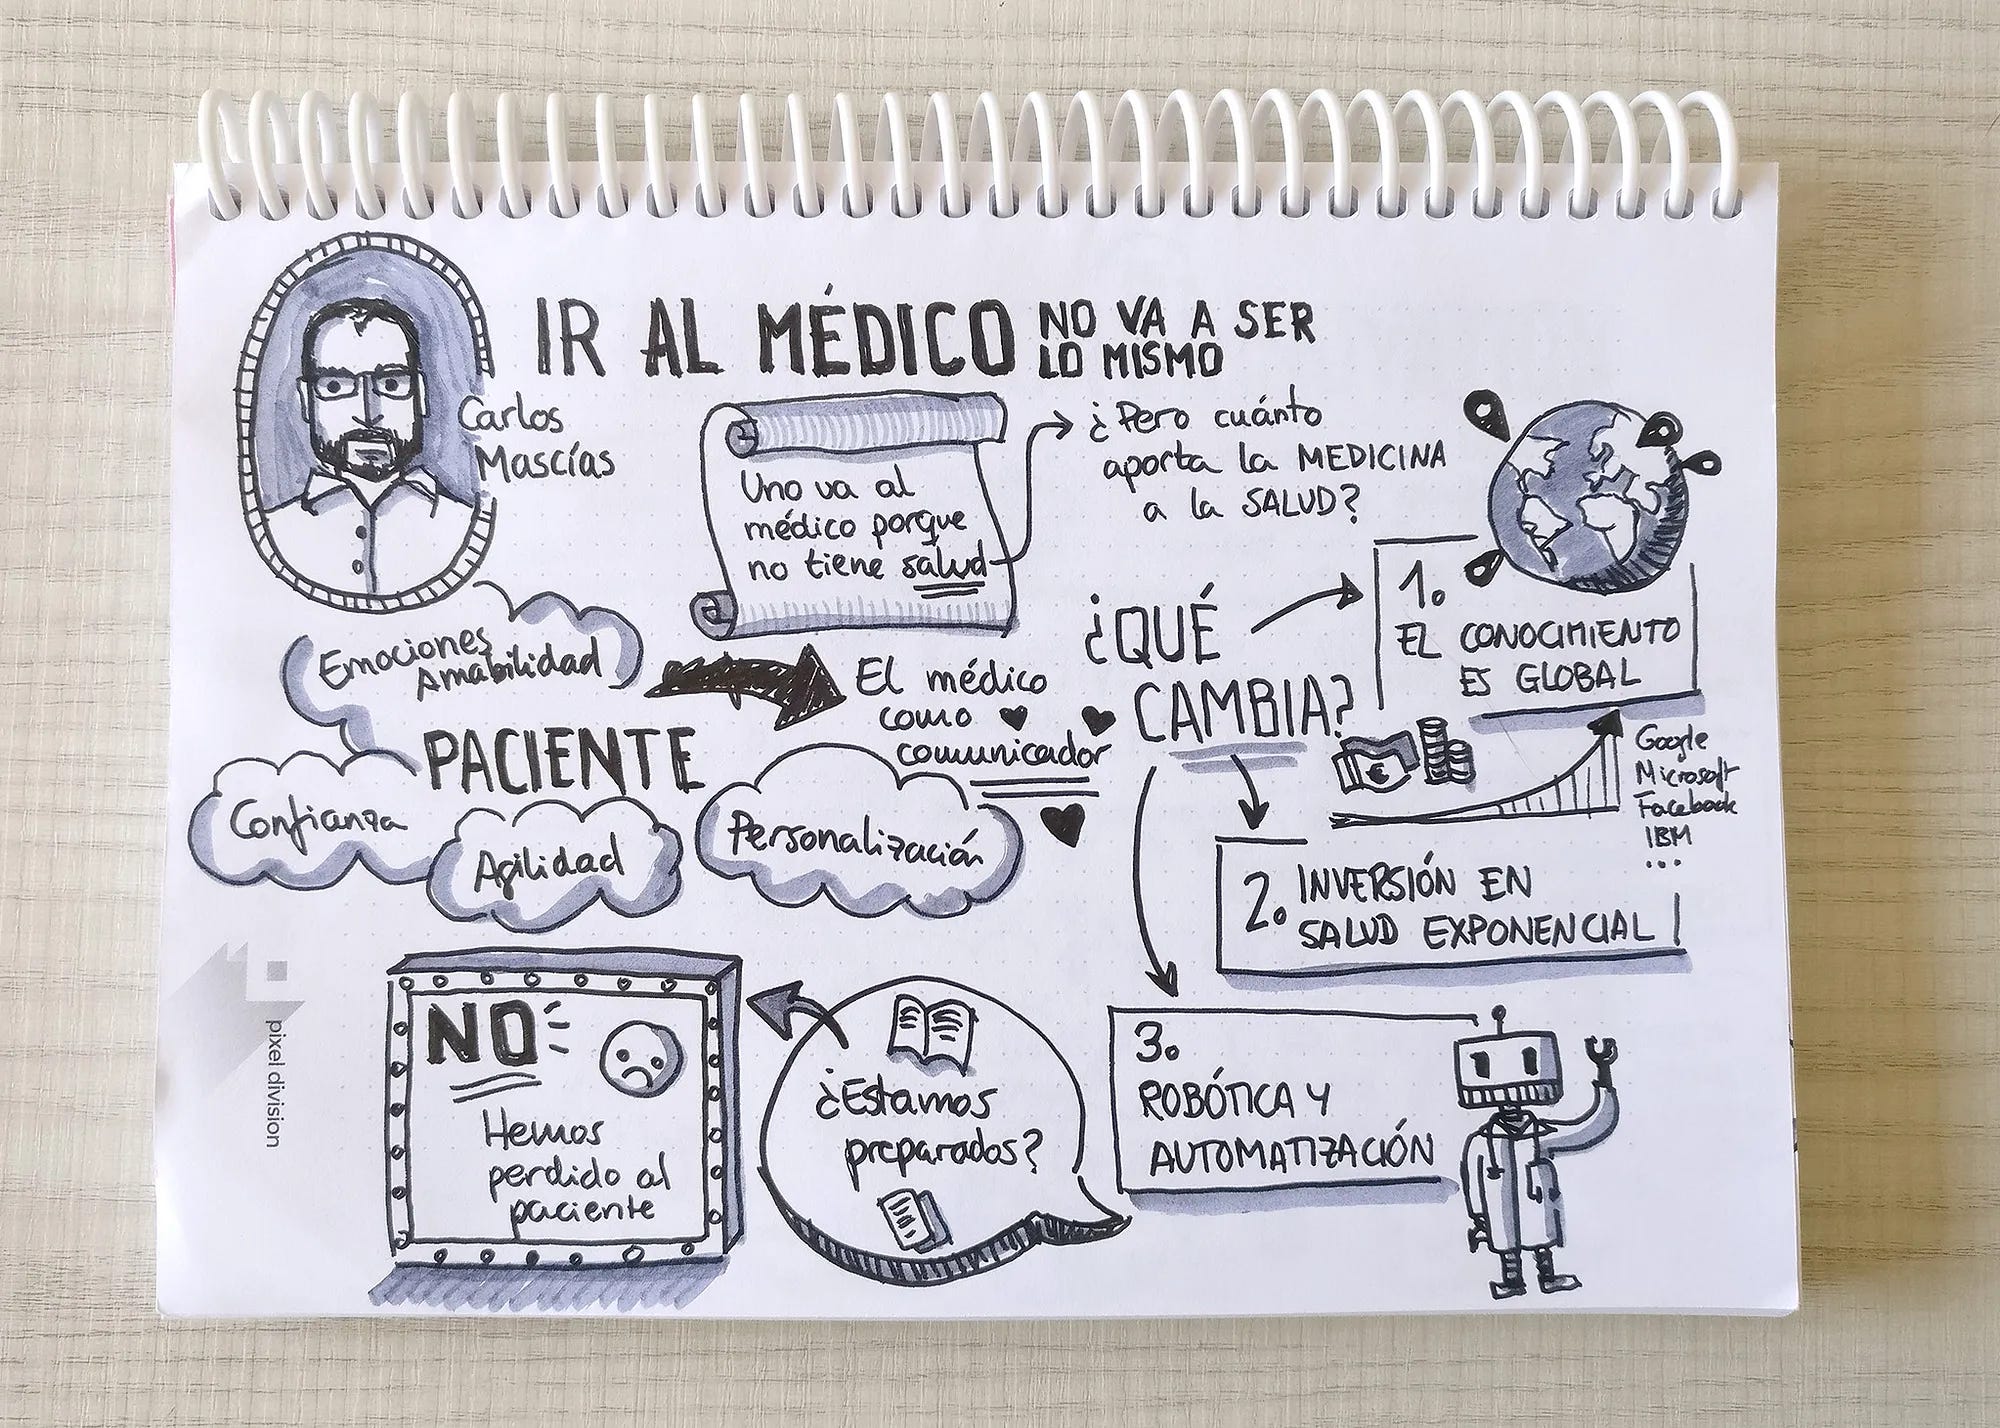 IR AL MÉDICO NO VA A SER
LO MISMO
Carlos
Mascías
Uno va al
médico porque
no tiene salud
¿Pero cuánto
aporta la MEDICINA
a la SALUD?
Emociones
Amabilidad
PACIENTE
Confianza
Agilidad
Personalización
El médico
como
comunicador
¿QUÉ
CAMBIA?
1.
EL CONOCIMIENTO
ES GLOBAL
€
Google
Microsoft
Facebook
IBM
...
2. INVERSIÓN EN
SALUD EXPONENCIAL
3.
ROBÓTICA Y
AUTOMATIZACIÓN
¿Estamos
preparados?
NO
Hemos
perdido al
paciente
pixel division